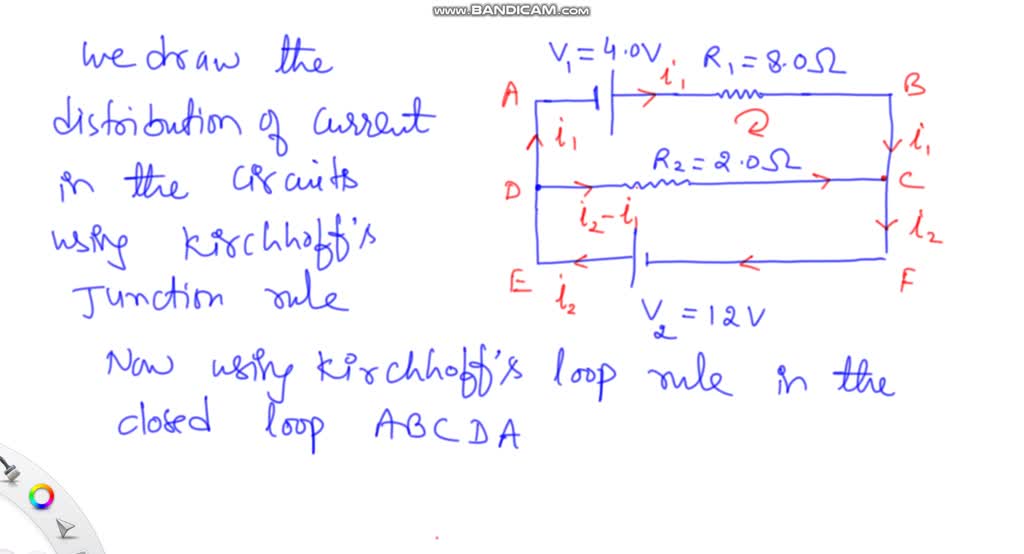 www.BANDICAM.com
we draw the
distribution of current
in the circuits
using Kirchhoff's
Junction rule
V₁ = 4.0V
i₁
R₁ = 8.0Ω
A
B
i₁
i₁
R₂ = 2.0Ω
D
C
i₂-i₁
i₂
E
i₂
F
V₂ = 12V
Now using Kirchhoff's loop rule in the
closed loop ABCDA